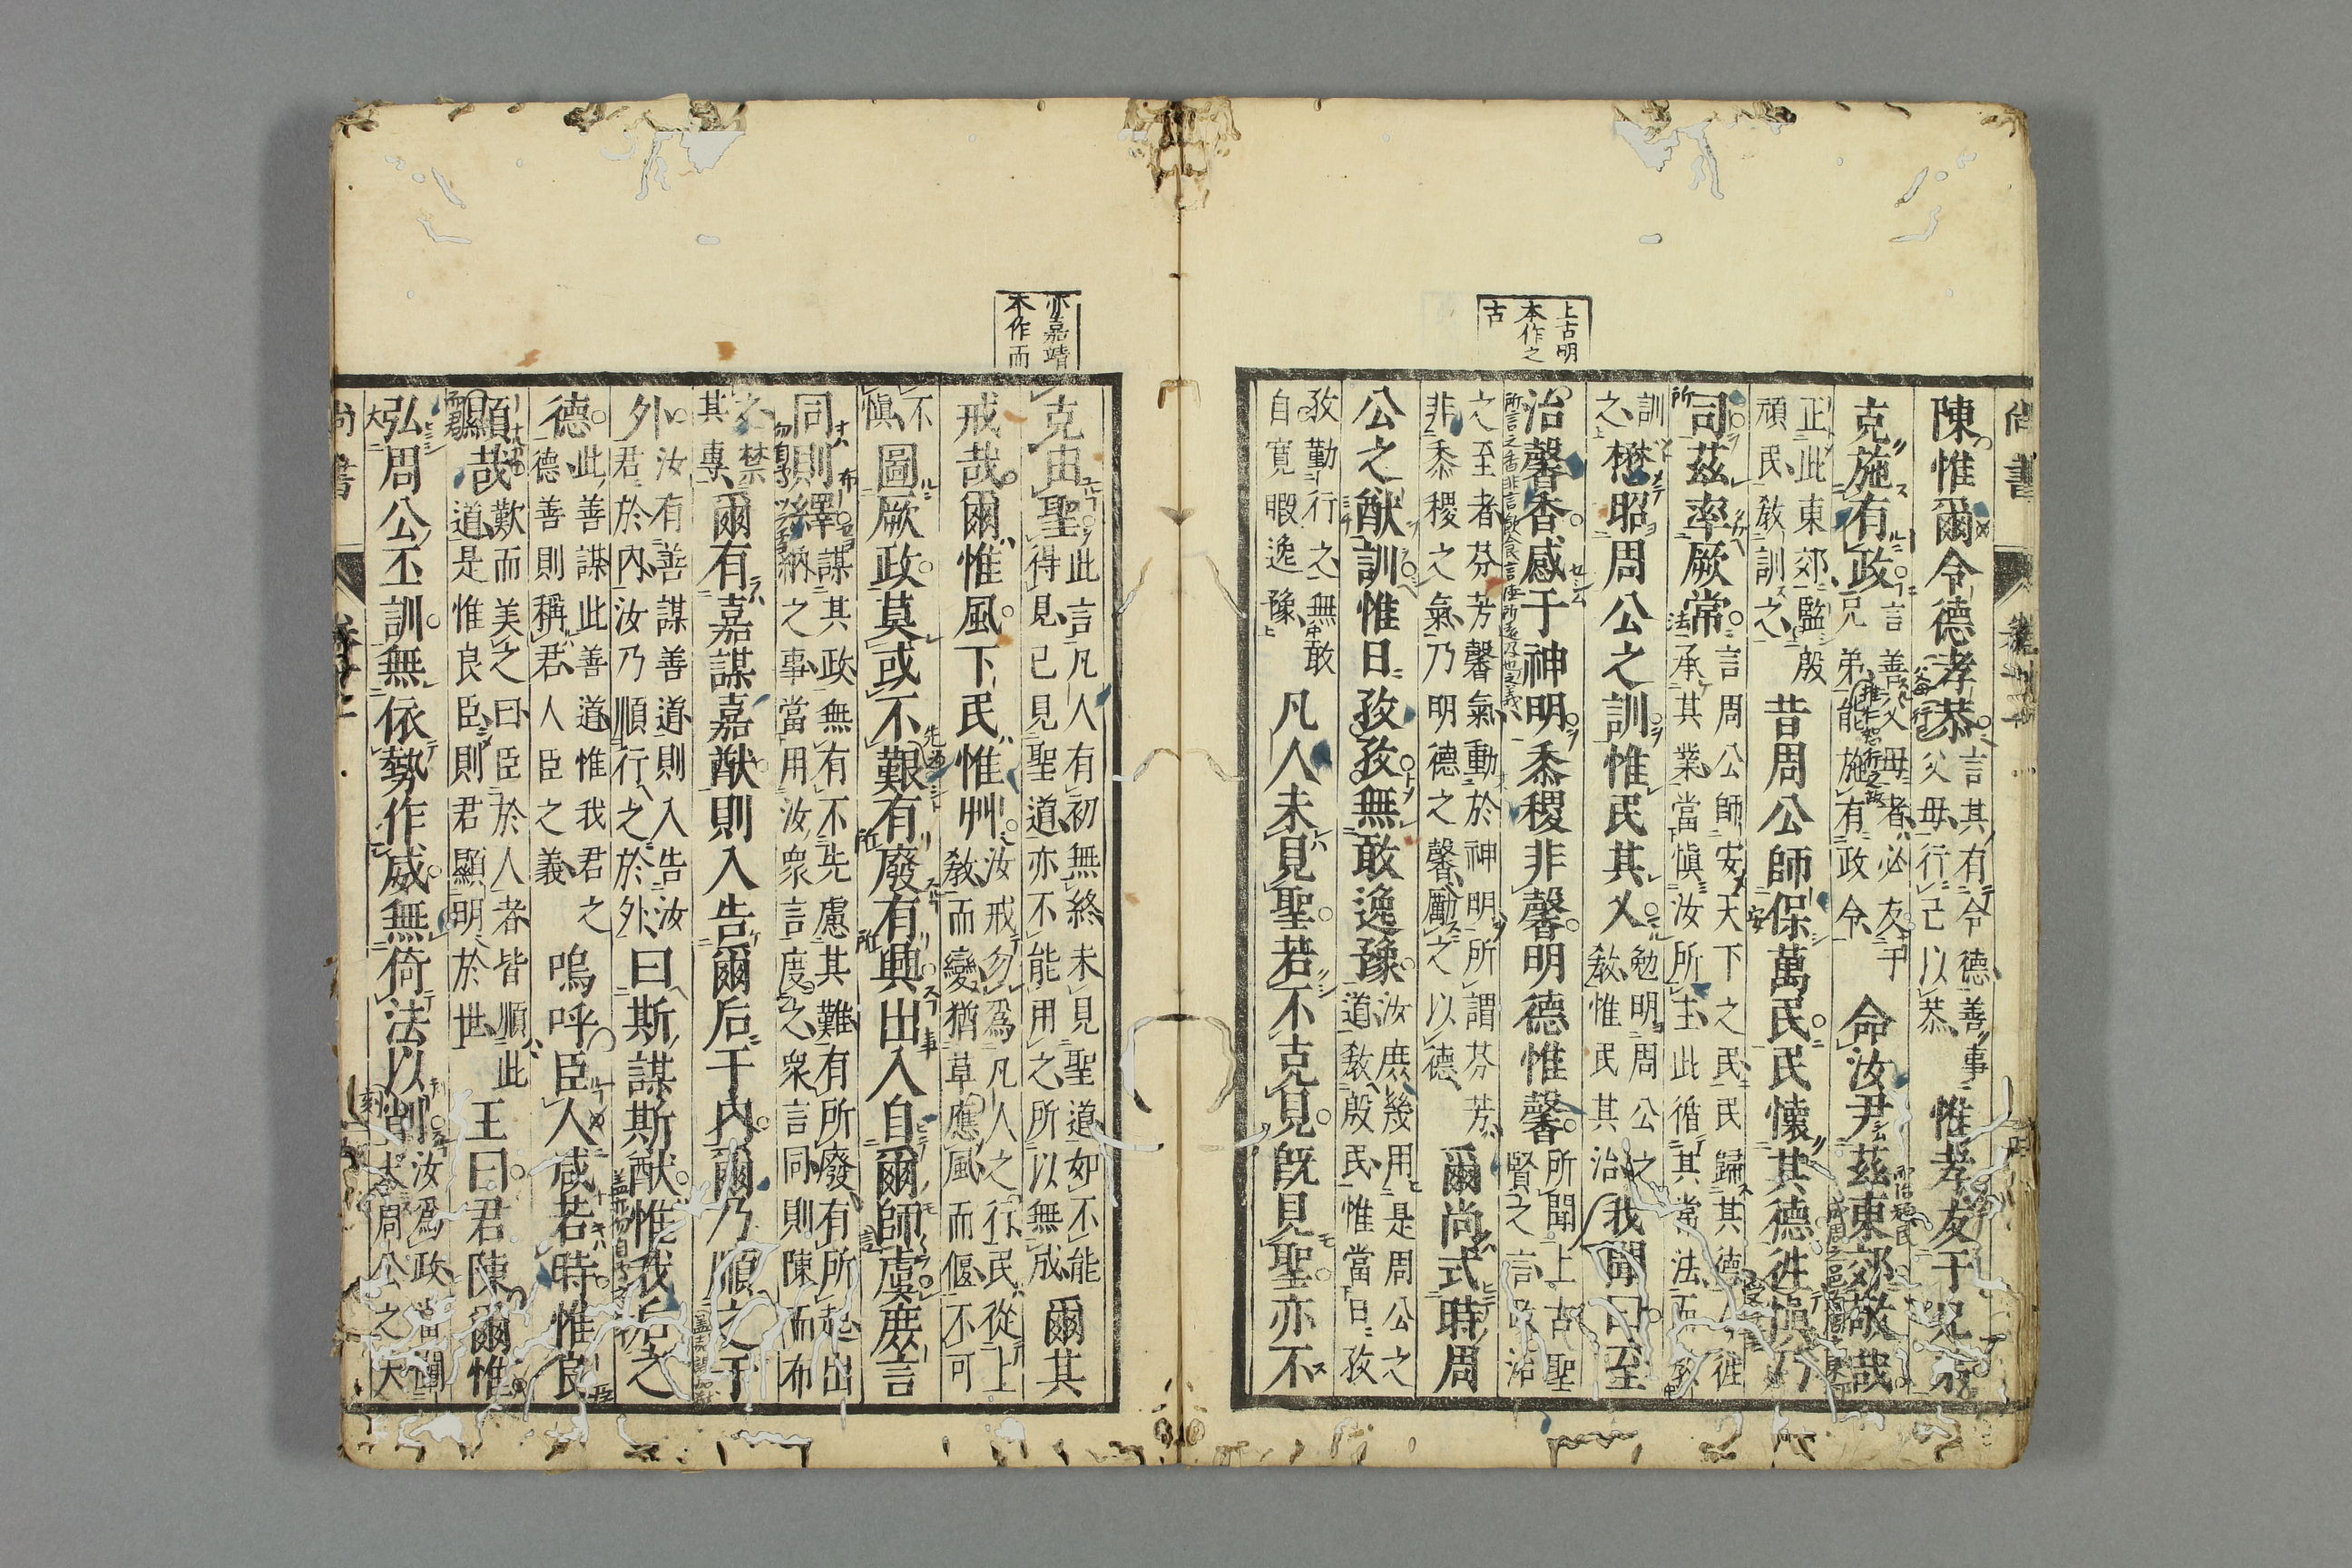 尚書
上古明
本作之
古
陳惟爾令德孝恭言其有令德善事
父母行己以恭惟孝友于兄弟
克施有政言善父母者必友于
兄弟能施有政令命汝尹茲東郊敬哉
正此東郊監殷
頑民教訓之昔周公師保萬民民懷其德往慎乃
司茲率厥常言周公師安天下之民民歸其德今往
承其業當慎汝所主此循其常法而教
訓
之懋昭周公之訓惟民其乂勉明周公之
教惟民其治我聞曰至
治馨香感于神明黍稷非馨明德惟馨所聞上古聖
賢之言政治
之至者芬芳馨氣動於神明所謂芬芳
非黍稷之氣乃明德之馨勵之以德爾尚式時周
公之猷訓惟日孜孜無敢逸豫汝庶幾用是周公之
道教殷民惟當日孜
孜勤行之無敢
自寬暇逸豫凡人未見聖若不克見既見聖亦不
亦嘉靖
本作而
克由聖此言凡人有初無終未見聖道如不能
得見已見聖道亦不能用之所以無成爾其
戒哉爾惟風下民惟艸汝戒勿為凡人之行民從上
教而變猶草應風而偃不可
不
慎圖厥政莫或不艱有廢有興出入自爾師虞庶言
同則繹謀其政無有不先慮其難有所廢有所起出
納之事當用汝眾言度之眾言同則陳而布
之禁
其專爾有嘉謀嘉猷則入告爾后于內爾乃順之于
外汝有善謀善道則入告汝
君於內汝乃順行之於外曰斯謀斯猷惟我后之
德此善謀此善道惟我君之
德善則稱君人臣之義嗚呼臣人咸若時惟良
顯哉歎而美之曰臣於人者皆順此
道是惟良臣則君顯明於世王曰君陳爾惟
弘周公丕訓無依勢作威無倚法以削汝為政當闡
大周公之大
尚書